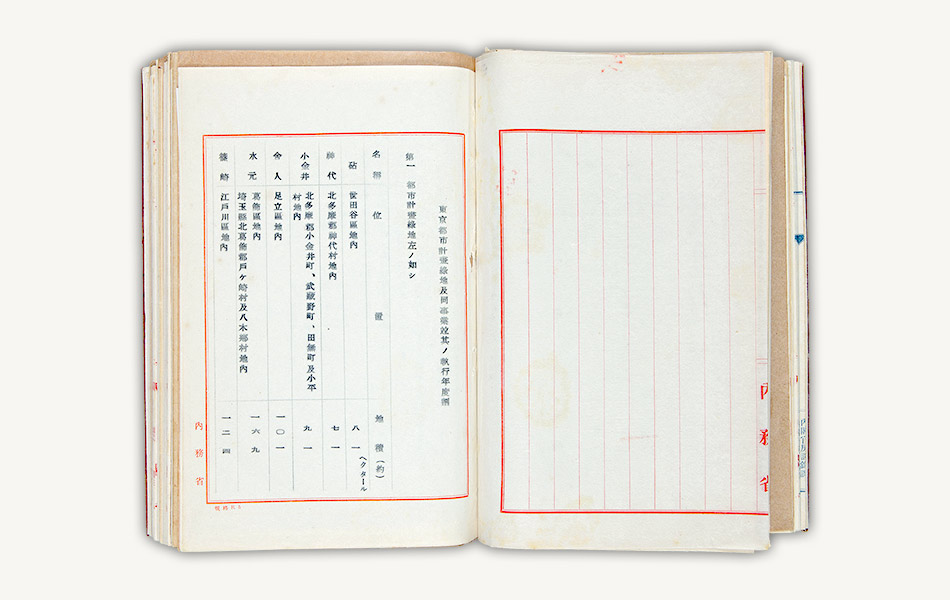 東京都市計畫綠地及同事業竝其ノ執行年度割
第一 都市計畫綠地左ノ如シ
名稱 位置 地積(約)
砧 世田谷區地內 八一ヘクタール
神代 北多摩郡神代村地內 七一
小金井 北多摩郡小金井町、武藏野町、田無町及小平
村地內 九一
舍人 足立區地內 一〇一
水元 葛飾區地內
埼玉縣北葛飾郡戶ケ崎村及八木鄕村地內 一六九
篠崎 江戶川區地內 一二四
內務省
內務省